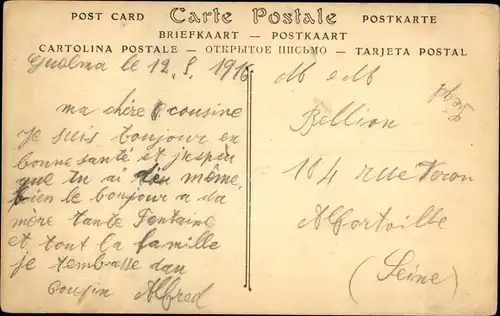 POST CARD Carte Postale POSTKARTE
BRIEFKAART — POSTKAART
CARTOLINA POSTALE — ОТКРЫТОЕ ПИСЬМО — TARJETA POSTAL
Guelma le 12.8. 1916
ma chère cousine
Je suis toujour en
bonne santé et j'espèr
que tu ai même
bien le bonjour a da
mère tante Fontaine
et tout la famille
je tembrasse dan
cousin Alfred
M e M
Bellion
184 rue Véron
Alfortville
(Seine)